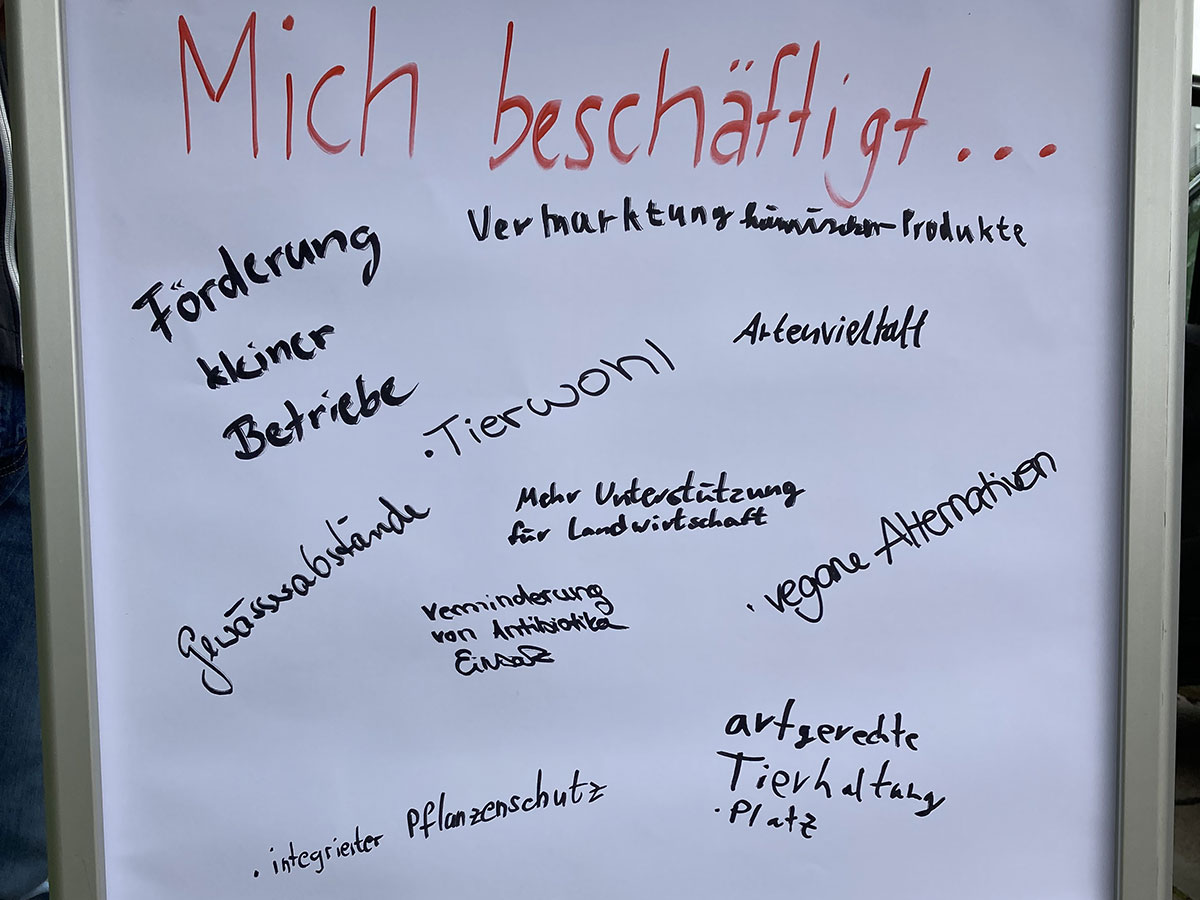 Mich beschäftigt...
Vermarktung heimischer Produkte
Förderung
kleiner
Betriebe
Artenvielfalt
· Tierwohl
Mehr Unterstützung
für Landwirtschaft
Gewässerabstände
· vegane Alternativen
Verminderung
von Antibiotika
Einsatz
artgerechte
Tierhaltung
· Platz
· integrierter Pflanzenschutz